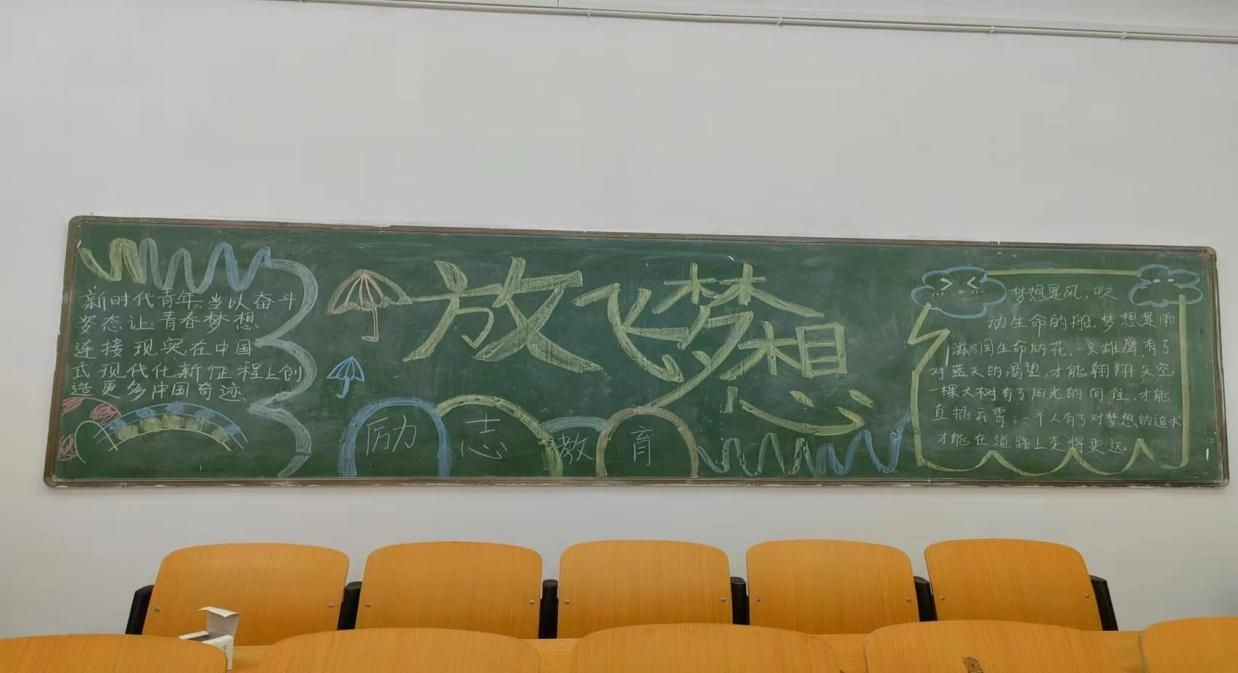 新时代青年,当以奋斗
姿态让青春梦想
连接现实在中国
式现代化新征程上创
造更多中国奇迹
放飞梦想
励志教育
梦想是风,吹
动生命的帆,梦想是雨
滋润生命的花,一只雄鹰有了
对蓝天的渴望,才能翱翔天空
一棵大树有了阳光的向往,才能
直插云霄,一个人有了对梦想的追求
才能在道路上走得更远